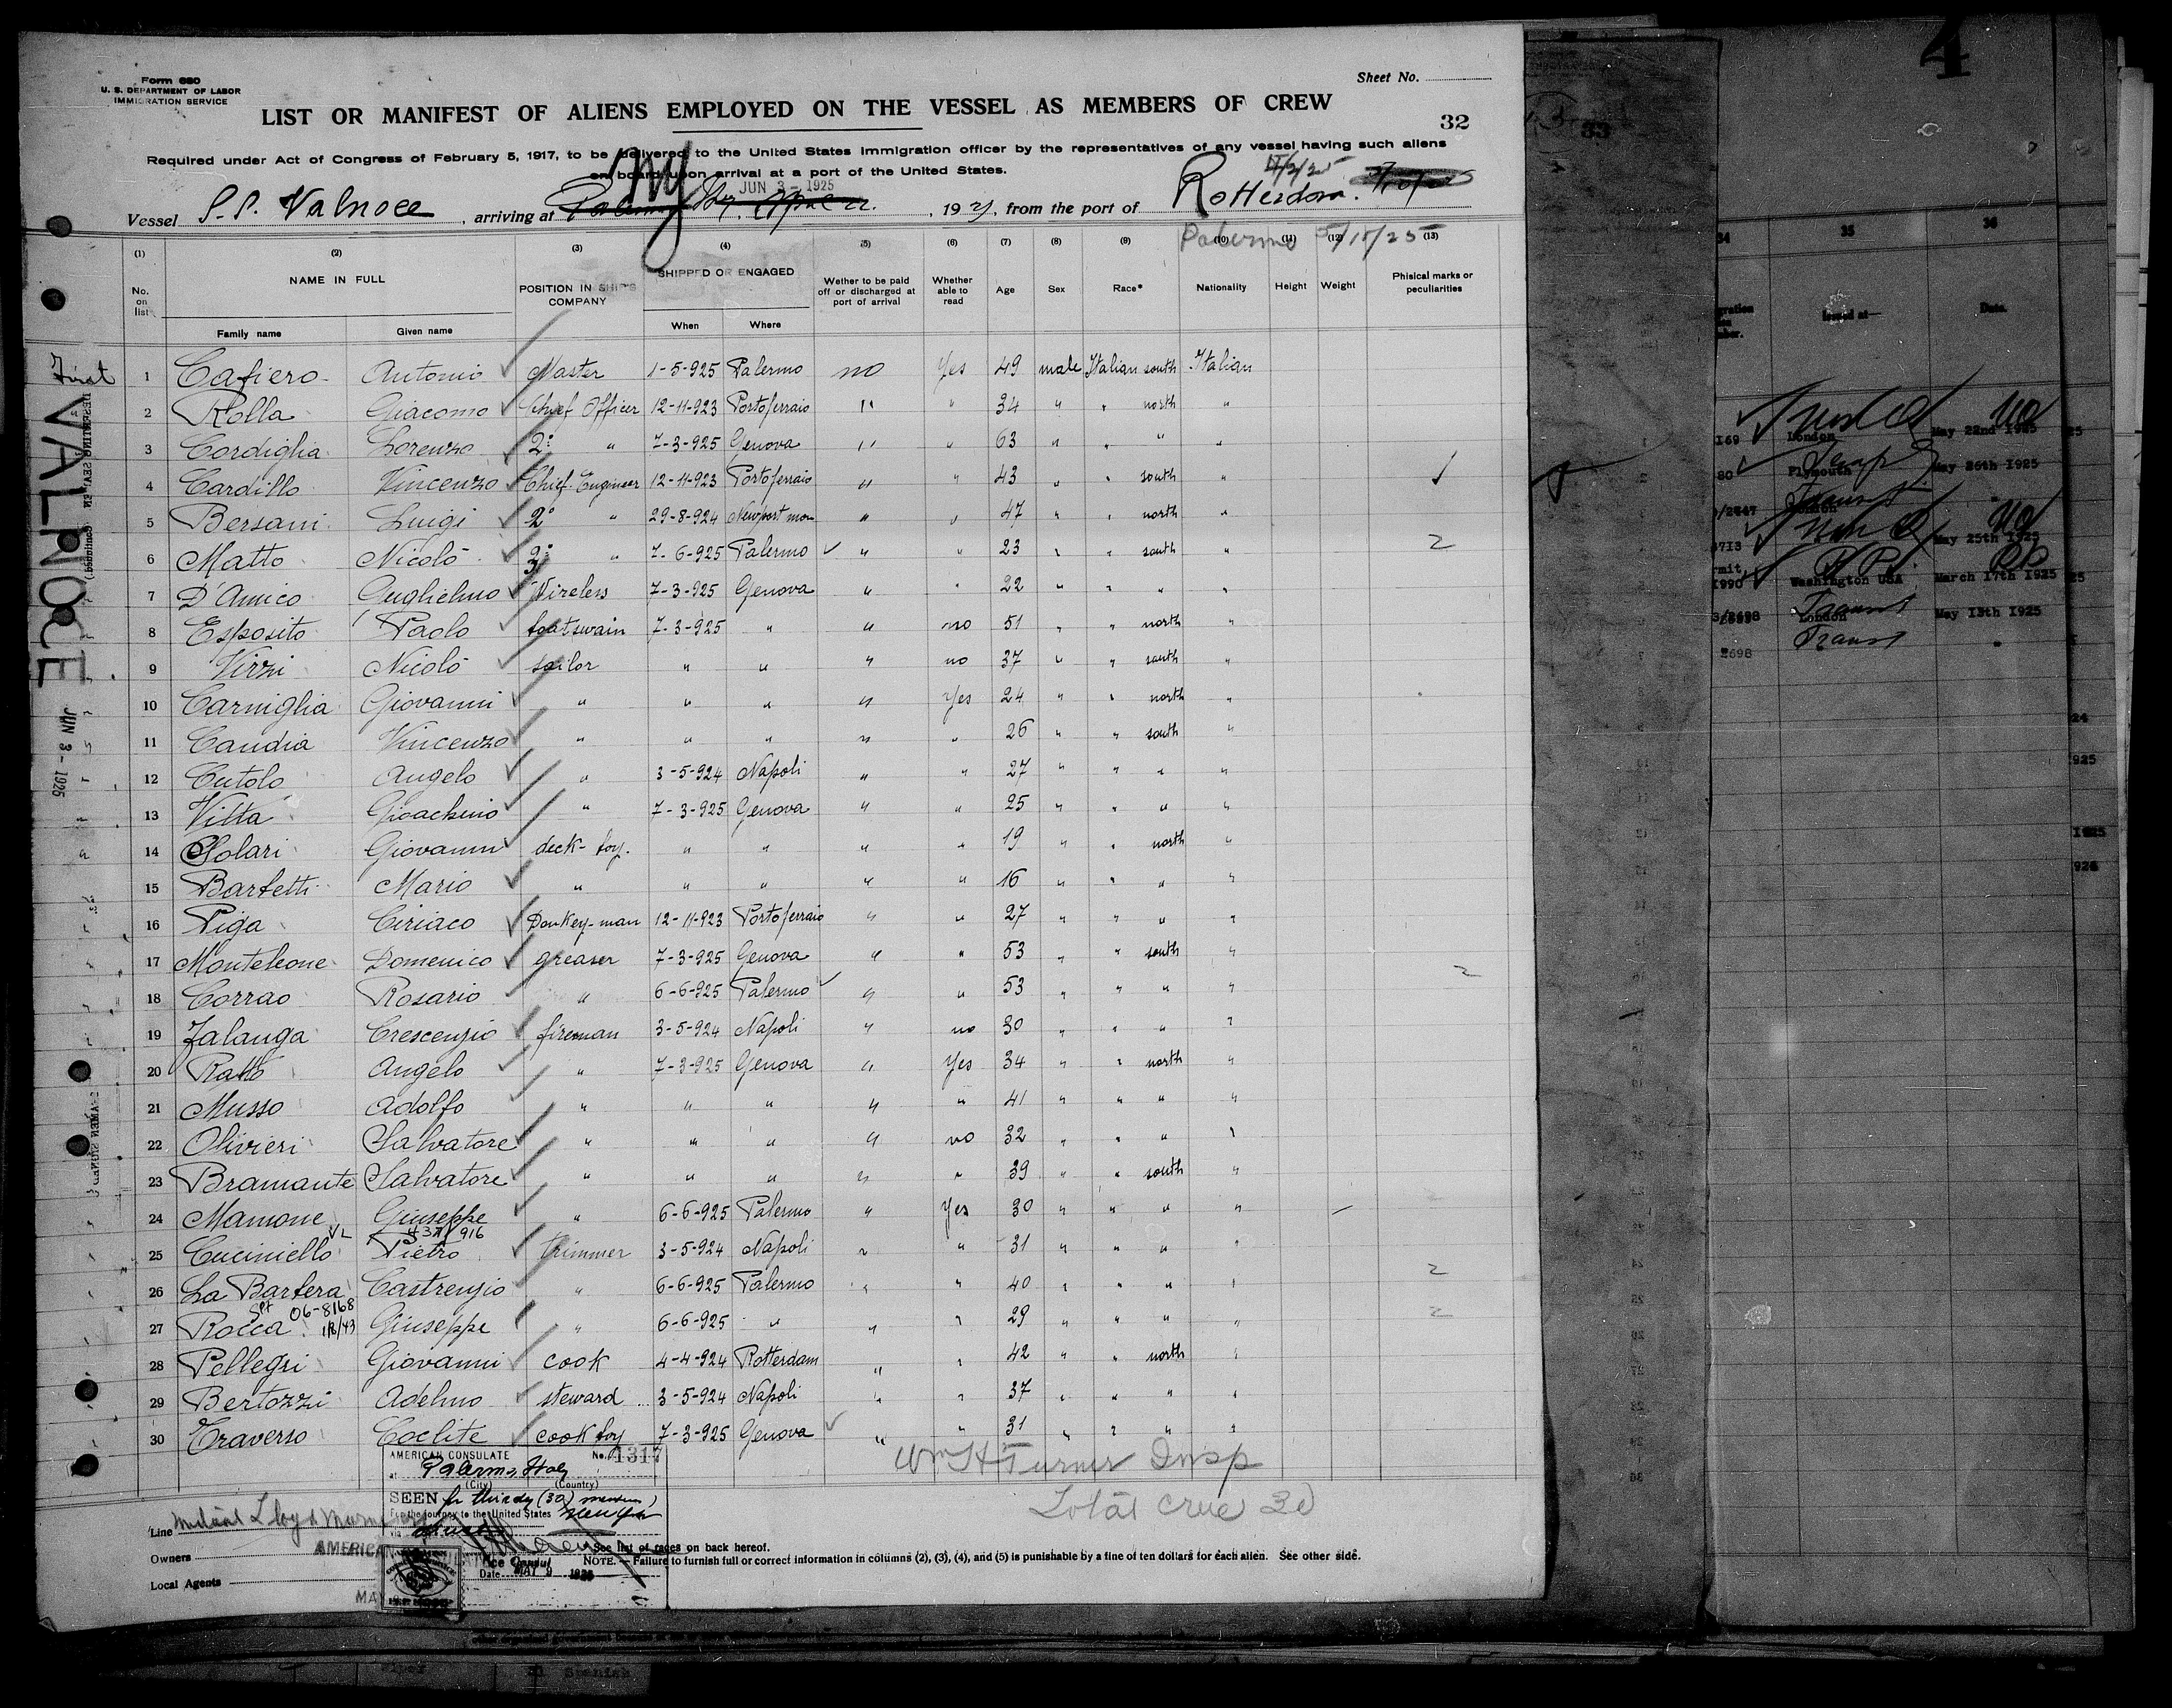 Form 680
U. S. DEPARTMENT OF LABOR
IMMIGRATION SERVICE
Sheet No.
LIST OR MANIFEST OF ALIENS EMPLOYED ON THE VESSEL AS MEMBERS OF CREW
32
Required under Act of Congress of February 5, 1917, to be delivered to the United States Immigration officer by the representatives of any vessel having such aliens
on board upon arrival at a port of the United States.
JUN 3 - 1925
Vessel S.S. Valnoce, arriving at NY, 192, from the port of Rotterdam.
Palermo 5/15/25
(1) (2) (3) (4) (5) (6) (7) (8) (9) (10) (11) (12) (13)
No. on list NAME IN FULL POSITION IN SHIP'S COMPANY SHIPPED OR ENGAGED Wether to be paid off or discharged at port of arrival Whether able to read Age Sex Race* Nationality Height Weight Phisical marks or peculiarities
Family name Given name When Where
First
VALNOCE
JUN 3 - 1925
1 Cafiero Antonio Master 1-5-925 Palermo no Yes 49 male Italian south Italian
2 Rolla Giacomo Chief Officer 12-11-923 Portoferraio " " 34 " " north "
3 Cordiglia Lorenzo 2° " 7-3-925 Genova " " 63 " " " "
4 Cardillo Vincenzo Chief Engineer 12-11-923 Portoferraio " " 43 " " south "
5 Bersani Luigi 2° " 29-8-924 Newport mon " " 47 " " north "
6 Matto Nicolò 3° " 7-6-925 Palermo " " 23 " " south " 2
7 D'Amico Guglielmo Wireless 7-3-925 Genova " " 22 " " " "
8 Esposito Paolo boatswain 7-3-925 " " no 51 " " north "
9 Virzi Nicolò sailor " " " no 37 " " south "
10 Carniglia Giovanni " " " " Yes 24 " " north "
11 Candia Vincenzo " " " " " 26 " " south "
12 Cutolo Angelo " 3-5-924 Napoli " " 27 " " " "
13 Vitta Gioachino " 7-3-925 Genova " " 25 " " " "
14 Solari Giovanni deck-boy. " " " " 19 " " north "
15 Barbetti Mario " " " " " 16 " " " "
16 Piga Ciriaco Donkey-man 12-11-923 Portoferraio " " 27 " " " "
17 Monteleone Domenico greaser 7-3-925 Genova " " 53 " " south "
18 Corrao Rosario " 6-6-925 Palermo " " 53 " " " " 2
19 Falanga Crescenzio fireman 3-5-924 Napoli " no 30 " " " "
20 Ratto Angelo " 7-3-925 Genova " Yes 34 " " north "
21 Musso Adolfo " " " " " 41 " " " "
22 Olivieri Salvatore " " " " no 32 " " " "
23 Bramante Salvatore " " " " " 39 " " south "
24 Mamone Giuseppe " 6-6-925 Palermo " Yes 30 " " " "
25 Cuciniello Pietro trimmer 3-5-924 Napoli " " 31 " " " "
26 La Barbera Castrenzio " 6-6-925 Palermo " " 40 " " " " 2
06-8168
27 Rocca 1/8/43 Giuseppe " 6-6-925 " " " 29 " " " " 2
28 Pellegri Giovanni cook 4-4-924 Rotterdam " " 42 " " north "
29 Bertozzi Adelmo steward 3-5-924 Napoli " " 37 " " " "
30 Traverso Coclite cook boy 7-3-925 Genova " " 31 " " " "
Wm H Turner Insp
Total crue 30
AMERICAN CONSULATE No. 1317
at Palermo, Italy
(City) (Country)
SEEN for thirty (30) members
For the journey to the United States New York
Vice Consul
Date MAY 9 1925
Line
Owners
Local Agents
See list of races on back hereof.
NOTE. — Failure to furnish full or correct information in columns (2), (3), (4), and (5) is punishable by a fine of ten dollars for each alien. See other side.
33
4
34 35 36
Issued at— Date.
London May 22nd 1925
Plymouth May 26th 1925
May 25th 1925
Washington USA March 17th 1925
London May 13th 1925
Transt